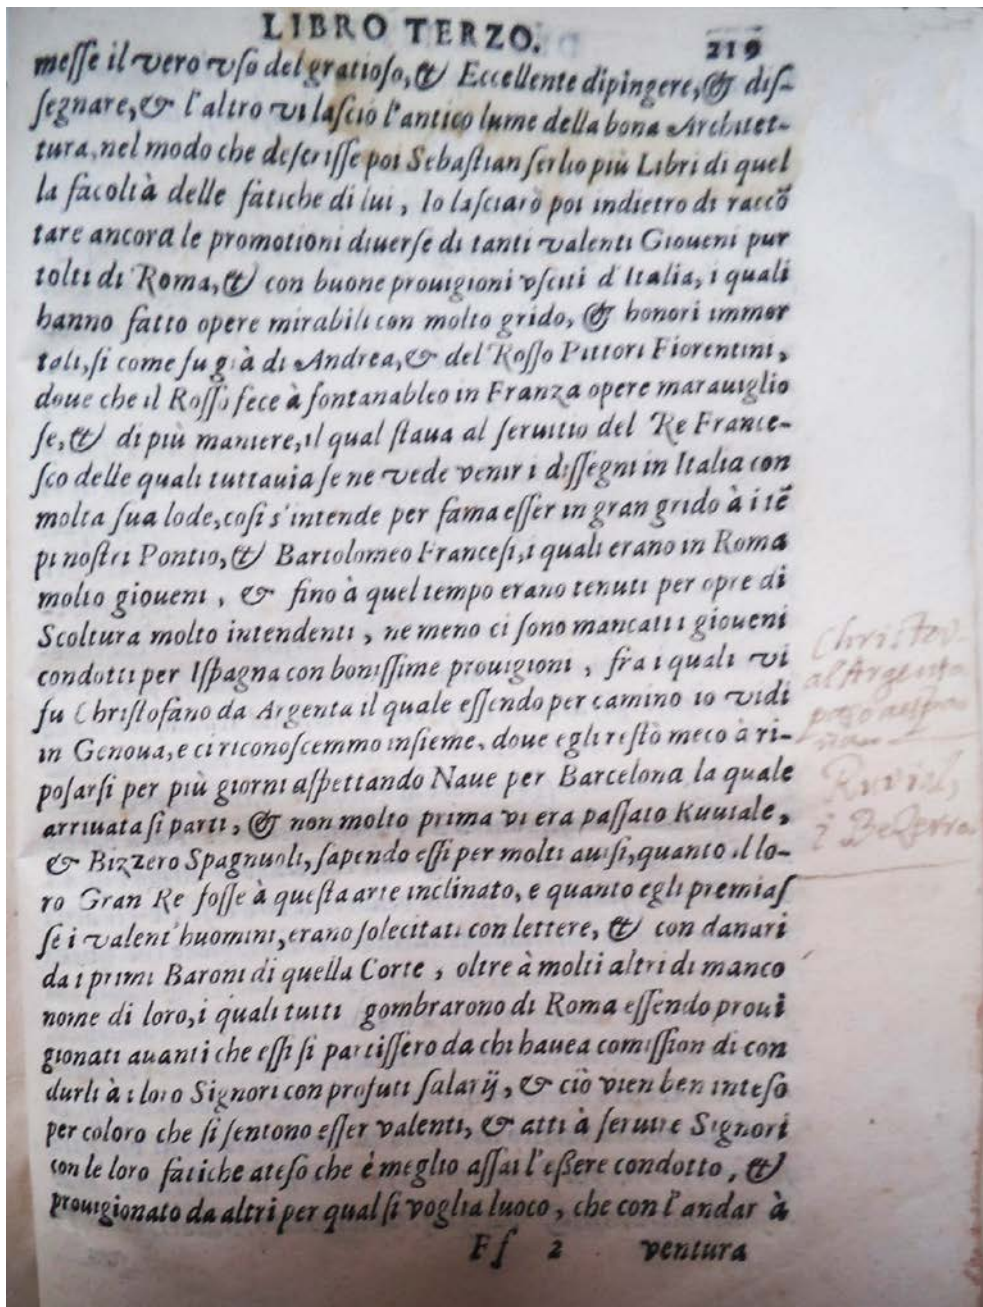 LIBRO TERZO. 219
messe il vero vso del gratioso, & Eccellente dipingere, & dis-
segnare, & l'altro vi lasciò l'antico lume della bona Architet-
tura, nel modo che descrisse poi Sebastian serlio più Libri di quel
la facoltà delle fatiche di lui, Io lasciarò poi indietro di raccõ
tare ancora le promotioni diuerse di tanti valenti Gioueni pur
tolti di Roma, & con buone prouigioni vsciti d'Italia, i quali
hanno fatto opere mirabili con molto grido, & honori immor
tali, si come fu già di Andrea, & del Rosso Pittori Fiorentini,
doue che il Rosso fece à fontanableo in Franza opere marauiglio
se, & di più maniere, il qual staua al seruitio del Re France-
sco delle quali tuttauia se ne vede venir i dissegni in Italia con
molta sua lode, cosi s'intende per fama esser in gran grido à i tẽ
pi nostri Pontio, & Bartolomeo Francesi, i quali erano in Roma
molto gioueni, & fino à quel tempo erano tenuti per opre di
Scoltura molto intendenti, ne meno ci sono mancati i gioueni
condotti per Ispagna con bonissime prouigioni, fra i quali vi
fu Christofano da Argenta il quale essendo per camino io vidi
in Genoua, e ci riconoscemmo insieme, doue egli restò meco à ri-
posarsi per più giorni aspettando Naue per Barcelona la quale
arriuata si parti, & non molto prima vi era passato Ruuiale,
& Bizzero Spagnuoli, sapendo essi per molti auisi, quanto il lo-
ro Gran Re fosse à questa arte inclinato, e quanto egli premias
se i valent'huomini, erano solecitati con lettere, & con danari
da i primi Baroni di quella Corte, oltre à molti altri di manco
nome di loro, i quali tutti gombrarono di Roma essendo proui
gionati auanti che essi si partissero da chi hauea comission di con
durli à i loro Signori con profuti salarij, & ciò vien ben inteso
per coloro che si sentono esser valenti, & atti à seruire Signori
con le loro fatiche ateso che è meglio assai l'essere condotto, &
prouigionato da altri per qual si voglia luoco, che con l'andar à
Ff 2 ventura
Christou-
al Argenta
Ruvial,
i Bezerra